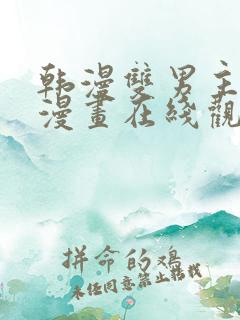 韩漫雙男主
漫畫在綫觀
拼命的鸡
未经同意禁止转载